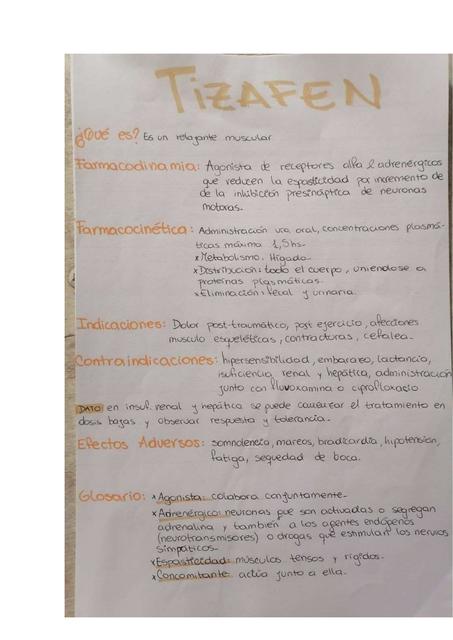 TIZAFEN
¿Qué es? Es un relajante muscular
Farmacodinamia: Agonista de receptores alfa 2 adrenérgicos
que reducen la espasticidad por incremento de
de la inhibición presináptica de neuronas
motoras.
Farmacocinética: Administración via oral, concentraciones plasmá-
ticas máxima 1,5hs.
x Metabolismo: Hígado
x Distribución: todo el cuerpo, uniendose a
proteínas plasmáticas.
x Eliminación: fecal y urinaria.
Indicaciones: Dolor post-traumático, post ejercicio, afecciones
musculo esqueléticas, contracturas, cefalea.
Contraindicaciones: hipersensibilidad, embarazo, lactancia,
insuficiencia renal y hepática, administración
junto con fluvoxamina o ciprofloxacio
DATO en insuf. renal y hepática se puede comenzar el tratamiento en
dosis bajas y observar respuesta y tolerancia.
Efectos Adversos: somnolencia, mareos, bradicardia, hipotensión,
fatiga, sequedad de boca.
Glosario: x Agonista: colabora conjuntamente.
x Adrenérgico: neuronas que son activadas o segregan
adrenalina y también a los agentes endógenos
(neurotransmisores) o drogas que estimulan los nervios
simpáticos.
x Espasticidad: músculos tensos y rígidos.
x Concomitante: actúa junto a ella.